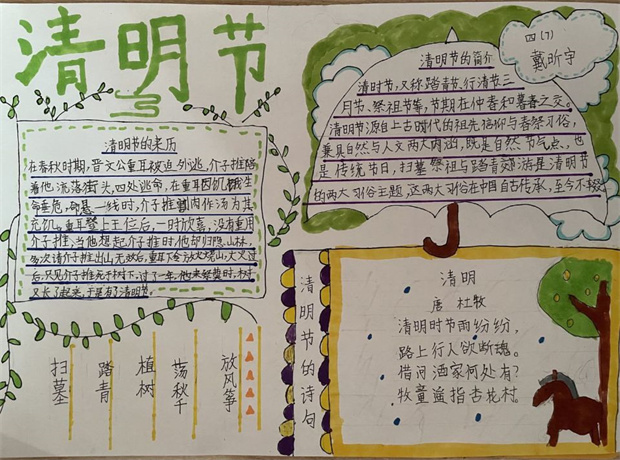 清明节
清明节的来历
在春秋时期，晋文公重耳被迫外逃，介子推陪
着他，流落街头，四处逃命，在重耳因饥饿生
命垂危，命悬一线时，介子推割肉作汤为其
充饥。重耳登上王位后，一时欣喜，没有重用
介子推，当他想起介子推时他却归隐山林，
多次请介子推出山，无效后，重耳下令放火烧山，大火过
后，只见介子推死于树下，过了一年，他来祭奠时，树
又长了起来，于是有了清明节。
扫墓
踏青
植树
荡秋千
放风筝
四(7)
戴昕宇
清明节的简介
清时节，又称踏青节、行清节三
月节、祭祖节等，节期在仲春和暮春之交。
清明节源自上古时代的祖先信仰与春祭习俗，
兼具自然与人文两大内涵，既是自然节气点，也
是传统节日，扫墓祭祖与踏青郊游是清明节
的两大习俗主题，这两大习俗在中国自古传承，至今不辍
清明节的诗句
清明
唐 杜牧
清明时节雨纷纷，
路上行人欲断魂。
借问酒家何处有？
牧童遥指古花村。